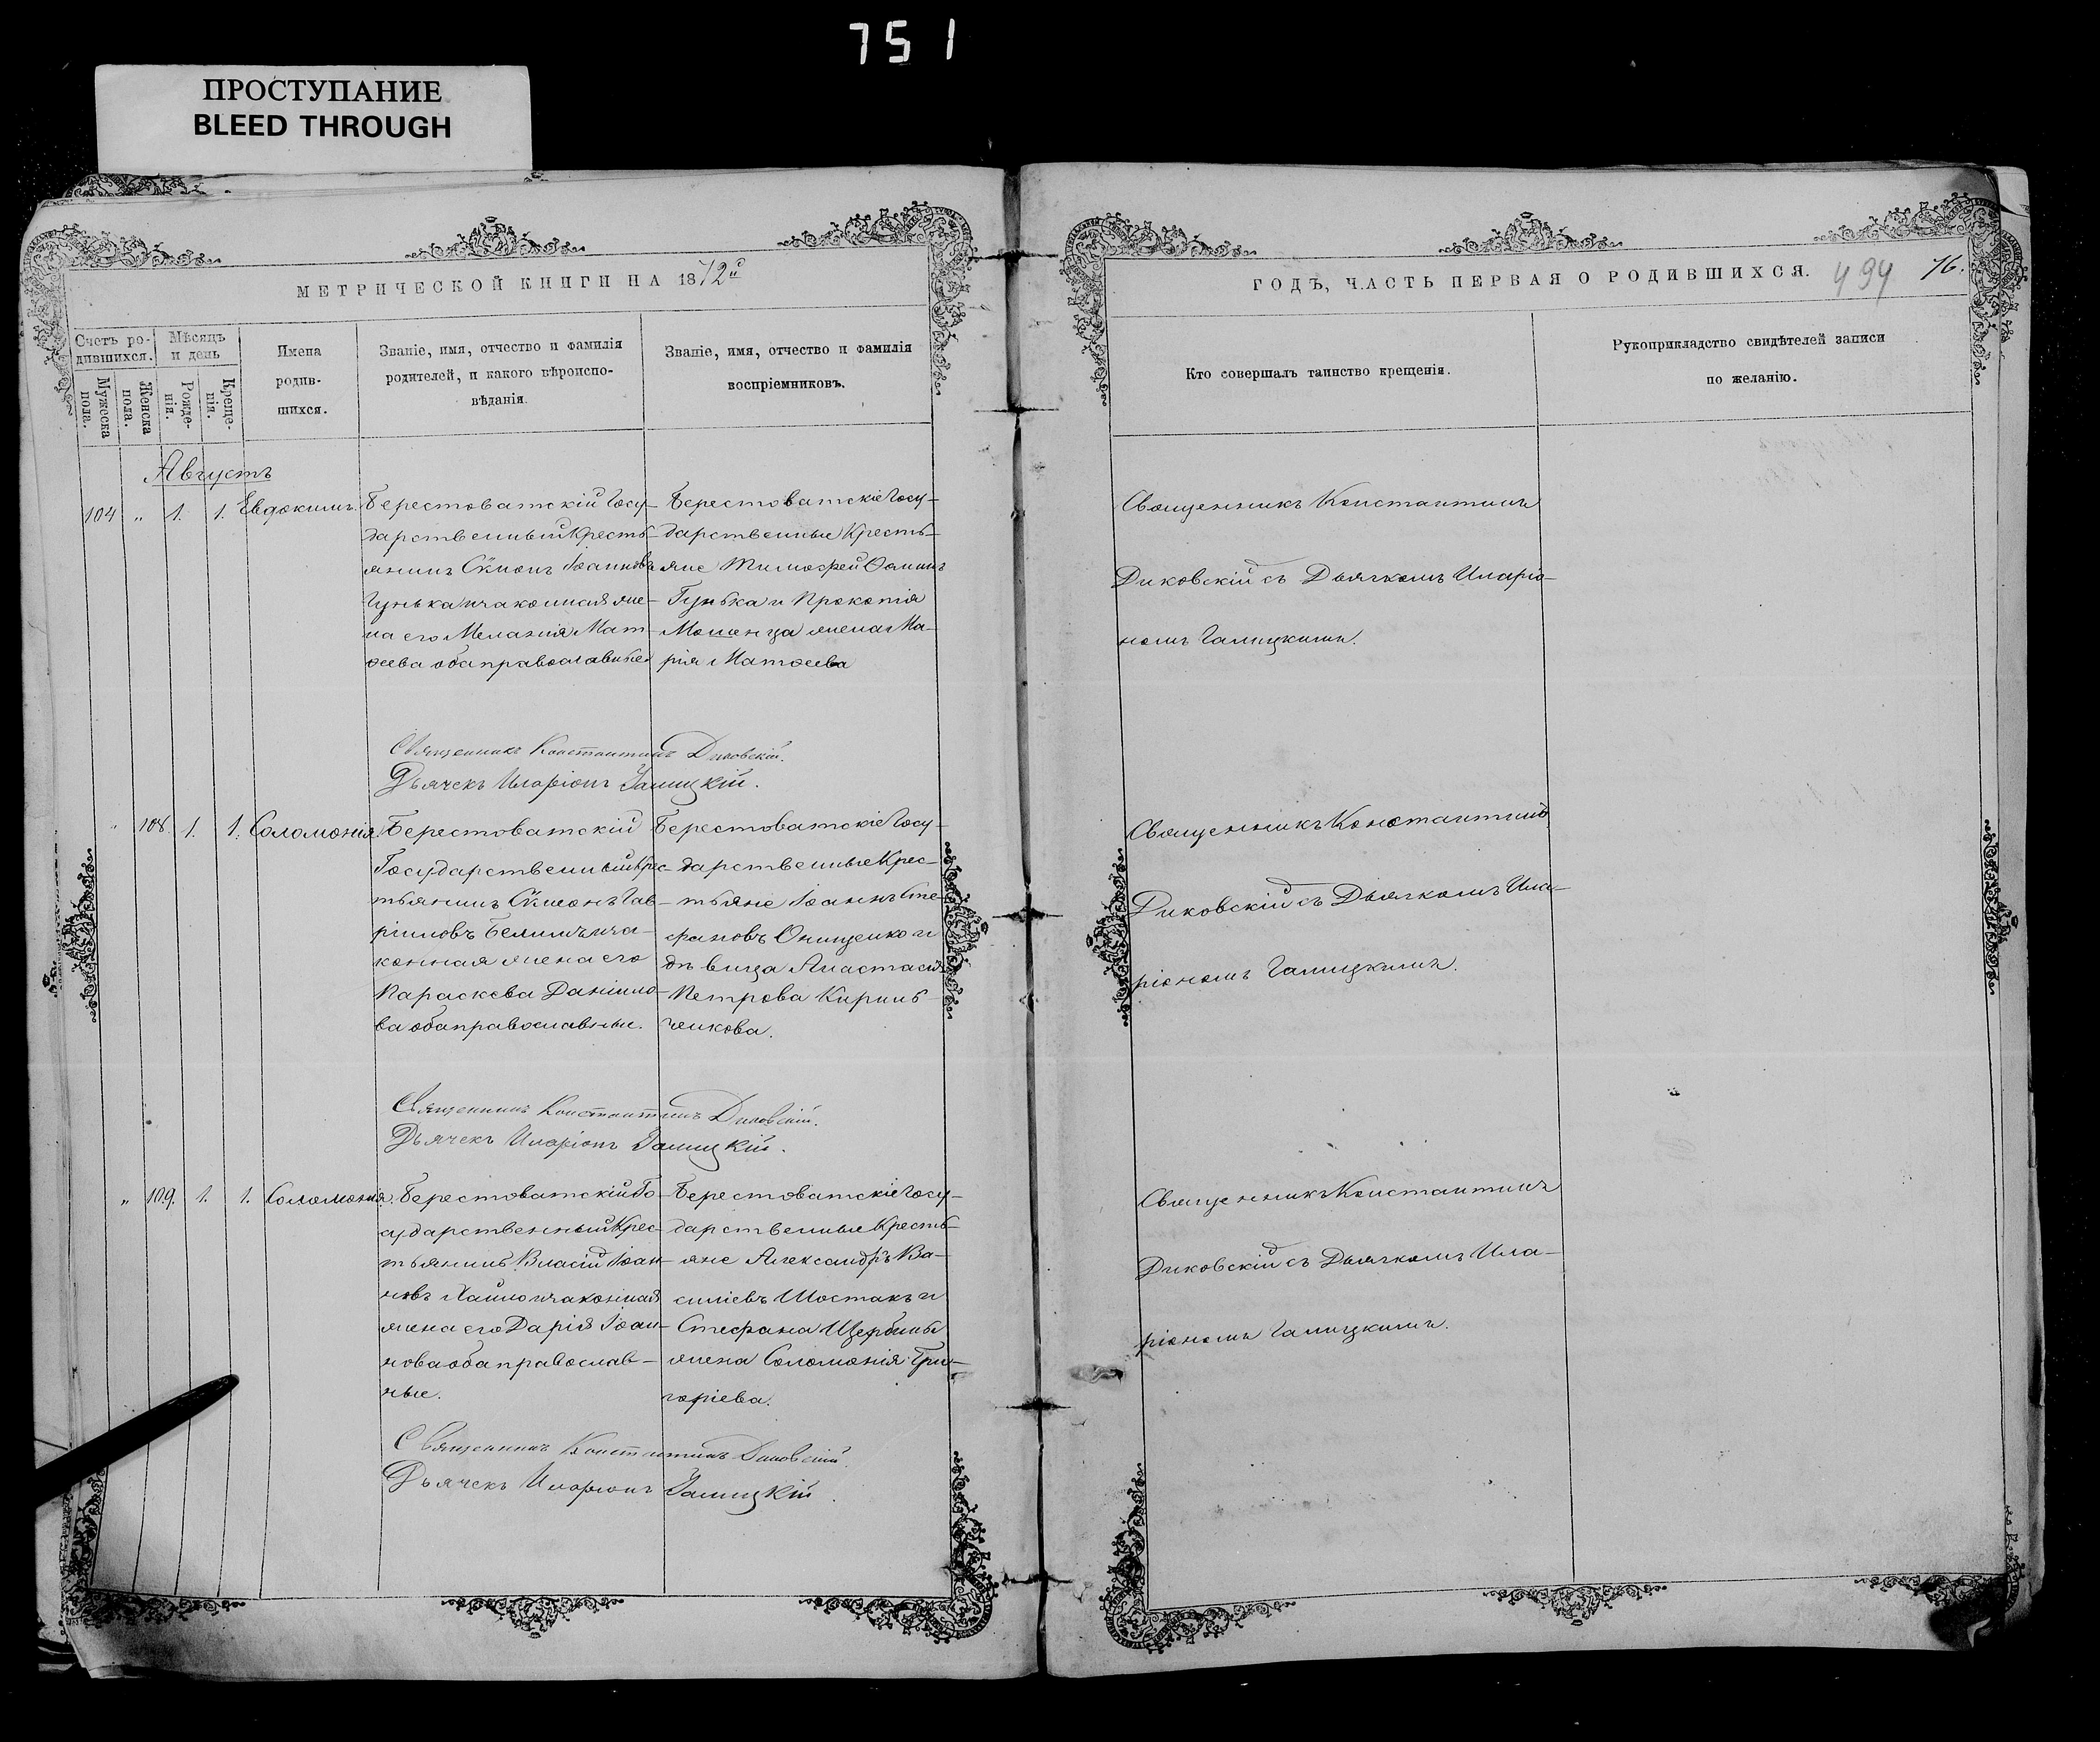 751
ПРОСТУПАНИЕ
BLEED THROUGH
МЕТРИЧЕСКОЙ КНИГИ НА 1872й
ГОДЪ, ЧАСТЬ ПЕРВАЯ О РОДИВШИХСЯ. 494 76.
Счетъ ро-
дившихся.
Мѣсяцъ
и день
Мужеска
пола.
Женска
пола.
Рожде-
нія.
Креще-
нія.
Имена
родив-
шихся.
Званіе, имя, отчество и фамилія
родителей, и какого вѣроиспо-
вѣданія.
Званіе, имя, отчество и фамилія
воспріемниковъ.
Кто совершалъ таинство крещенія.
Рукоприкладство свидѣтелей записи
по желанію.
Августъ
104 „ 1. 1. Евдокимъ.
Берестоватскій Госу-
дарственный Кресть-
янинъ Сѵмеонъ Іоанновъ
Гунька и законная же-
на его Меланія Мат-
ѳеева оба православные
Берестоватскіе Госу-
дарственные Кресть-
яне Тимоѳей
Гунька и Прокопія
жена Ма-
рія Матѳеева
Священникъ Константинъ
Диковскій съ Дьячкомъ Иларіо-
номъ Галицкимъ.
Священникъ Константинъ Диковскій.
Дьячекъ Иларіонъ Галицкій.
„ 108. 1. 1. Соломонія.
Берестоватскій
Государственный Крес-
тьянинъ Сѵмеонъ Гав-
ріиловъ и за-
конная жена его
Параскева Даніило-
ва оба православные.
Берестоватскіе Госу-
дарственные Крес-
тьяне Іоаннъ Сте-
фановъ Онищенко и
дѣвица Анастасія
Петрова Кириль-
ченкова.
Священникъ Константинъ
Диковскій съ Дьячкомъ Ила-
ріономъ Галицкимъ.
Священникъ Константинъ Диковскій.
Дьячекъ Иларіонъ Галицкій.
„ 109. 1. 1. Соломонія.
Берестоватскій Го-
сударственный Крес-
тьянинъ Власій Іоан-
новъ и законная
жена его Дарія Іоан-
нова оба православ-
ные.
Берестоватскіе Госу-
дарственные Кресть-
яне Александръ Ва-
силіевъ Шостакъ и
Стефана Щербины
жена Соломонія Гри-
горіева.
Священникъ Константинъ
Диковскій съ Дьячкомъ Ила-
ріономъ Галицкимъ.
Священникъ Константинъ Диковскій.
Дьячекъ Иларіонъ Галицкій.